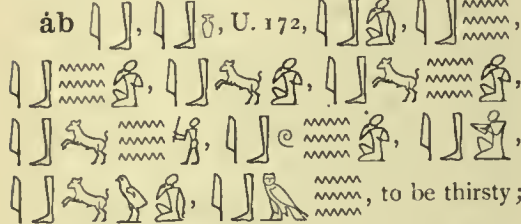 ȧb 𓇋𓃀, 𓇋𓃀𓏊, U. 172, 𓇋𓃀𓀁, 𓇋𓃀𓈗,
𓇋𓃀𓈗𓀁, 𓇋𓃀𓃙𓀁, 𓇋𓃀𓃙𓈗𓀁,
𓇋𓃀𓃙𓈗𓀜, 𓇋𓃀𓏲𓈗𓀁, 𓇋𓃀𓀁,
𓇋𓃀𓃙𓅱𓀁, 𓇋𓃀𓅓𓈗, to be thirsty;